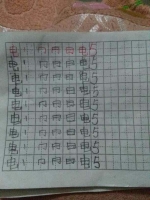 电 丨 冂 日 日 电 5
电 丨 冂 日 日 电 5
电 丨 冂 日 日 电 5
电 丨 冂 日 日 电 5
电 丨 冂 日 日 电 5
电 丨 冂 日 日 电 5
电 丨 冂 日 日 电 5
电 丨 冂 日 日 电 5
电 丨 冂 日 日 电 5
电 丨 冂 日 日 电 5